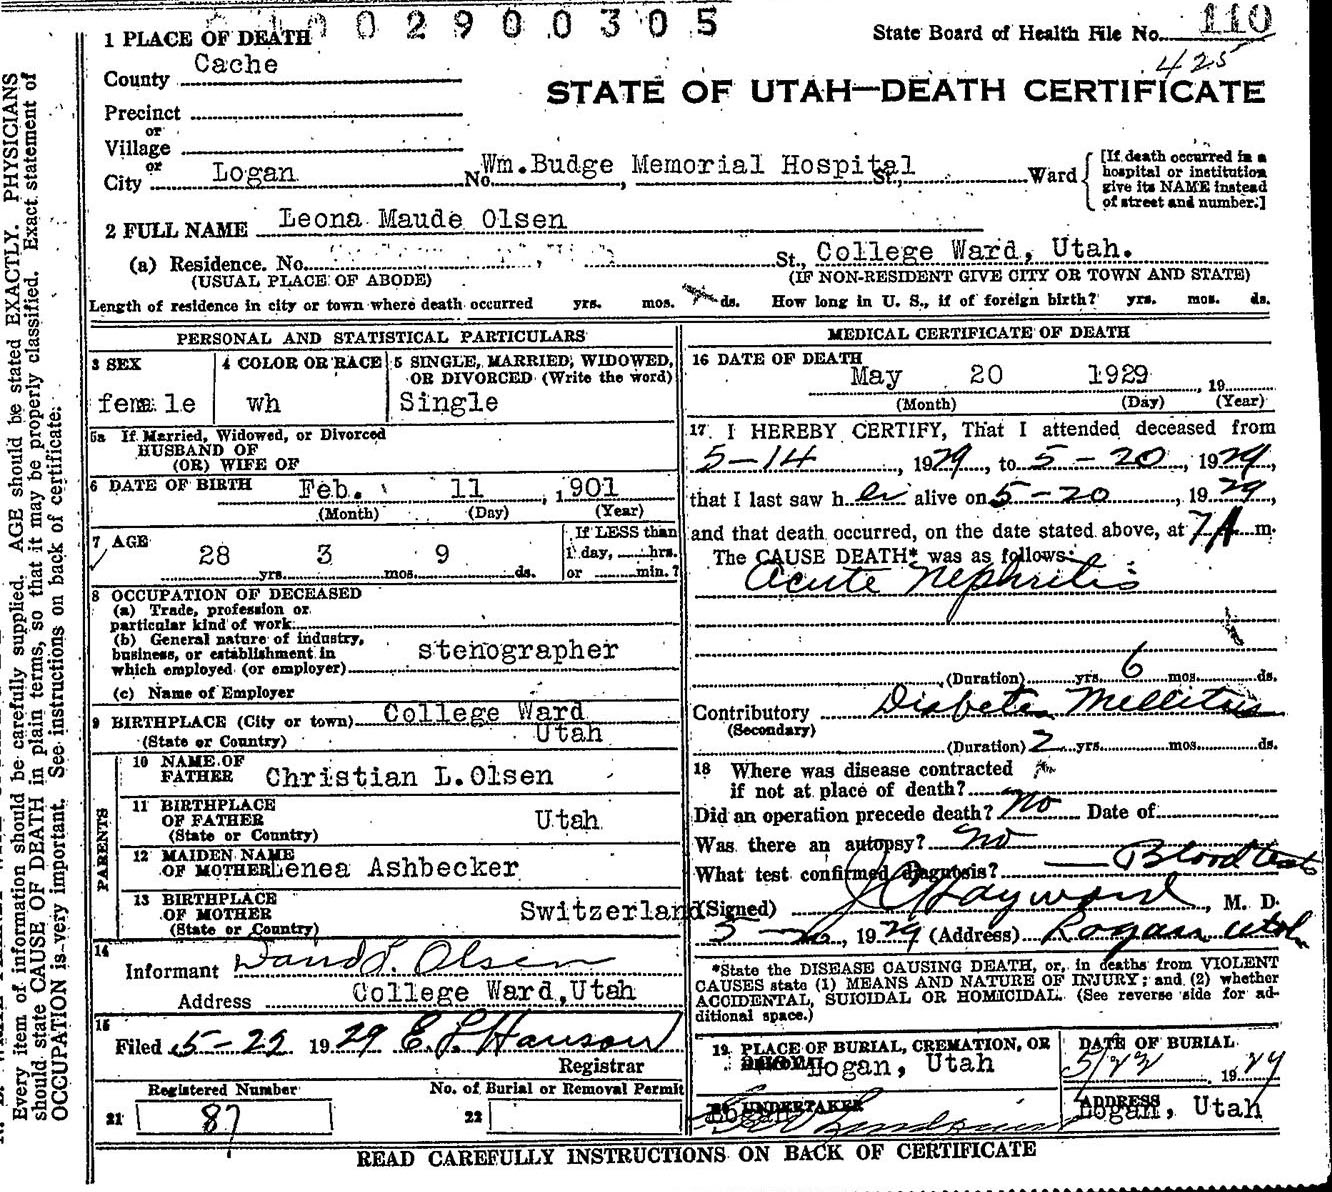 0 0 2 9 0 0 3 0 5
State Board of Health File No. 110
425
1 PLACE OF DEATH
County Cache
STATE OF UTAH—DEATH CERTIFICATE
Precinct
or
Village
or
City Logan No. Wm.Budge Memorial Hospital St., Ward
[If death occurred in a
hospital or institution
give its NAME instead
of street and number.]
2 FULL NAME Leona Maude Olsen
(a) Residence. No. St., College Ward, Utah.
(USUAL PLACE OF ABODE) (IF NON-RESIDENT GIVE CITY OR TOWN AND STATE)
Length of residence in city or town where death occurred yrs. mos. ds. How long in U. S., if of foreign birth? yrs. mos. ds.
PERSONAL AND STATISTICAL PARTICULARS
3 SEX
female
4 COLOR OR RACE
wh
5 SINGLE, MARRIED, WIDOWED,
OR DIVORCED (Write the word)
Single
5a If Married, Widowed, or Divorced
HUSBAND OF
(OR) WIFE OF
6 DATE OF BIRTH Feb. 11, 1901
(Month) (Day) (Year)
7 AGE
28 yrs. 3 mos. 9 ds.
If LESS than
1 day, hrs.
or min.?
8 OCCUPATION OF DECEASED
(a) Trade, profession or
particular kind of work
(b) General nature of industry,
business, or establishment in
which employed (or employer) stenographer
(c) Name of Employer
9 BIRTHPLACE (City or town) College Ward
(State or Country) Utah
PARENTS
10 NAME OF
FATHER Christian L.Olsen
11 BIRTHPLACE
OF FATHER Utah
(State or Country)
12 MAIDEN NAME
OF MOTHER Lenea Ashbecker
13 BIRTHPLACE
OF MOTHER Switzerland
(State or Country)
14
Informant David L. Olsen
Address College Ward,Utah
15
Filed 5-22 1929 E. L. Hanson
Registrar
Registered Number
21 87
No. of Burial or Removal Permit
22
MEDICAL CERTIFICATE OF DEATH
16 DATE OF DEATH
May 20 1929, 19
(Month) (Day) (Year)
17 I HEREBY CERTIFY, That I attended deceased from
5-14, 1929, to 5-20, 1929,
that I last saw her alive on 5-20, 1929,
and that death occurred, on the date stated above, at 7A m.
The CAUSE DEATH* was as follows:
Acute Nephritis
(Duration) yrs. 6 mos. ds.
Contributory Diabetes Mellitus
(Secondary)
(Duration) 2 yrs. mos. ds.
18 Where was disease contracted
if not at place of death?
Did an operation precede death? no Date of
Was there an autopsy? no
What test confirmed diagnosis? Blood tests
(Signed) J C Hayward, M. D.
5-20, 1929 (Address) Logan Utah
*State the DISEASE CAUSING DEATH, or, in deaths from VIOLENT
CAUSES state (1) MEANS AND NATURE OF INJURY; and (2) whether
ACCIDENTAL, SUICIDAL OR HOMICIDAL. (See reverse side for ad-
ditional space.)
19 PLACE OF BURIAL, CREMATION, OR
Logan, Utah
DATE OF BURIAL
5/22 1929
20 UNDERTAKER
Logan
ADDRESS
Logan, Utah
READ CAREFULLY INSTRUCTIONS ON BACK OF CERTIFICATE
Every item of information should be carefully supplied. AGE should be stated EXACTLY. PHYSICIANS
should state CAUSE OF DEATH in plain terms, so that it may be properly classified. Exact statement of
OCCUPATION is very important. See instructions on back of certificate.